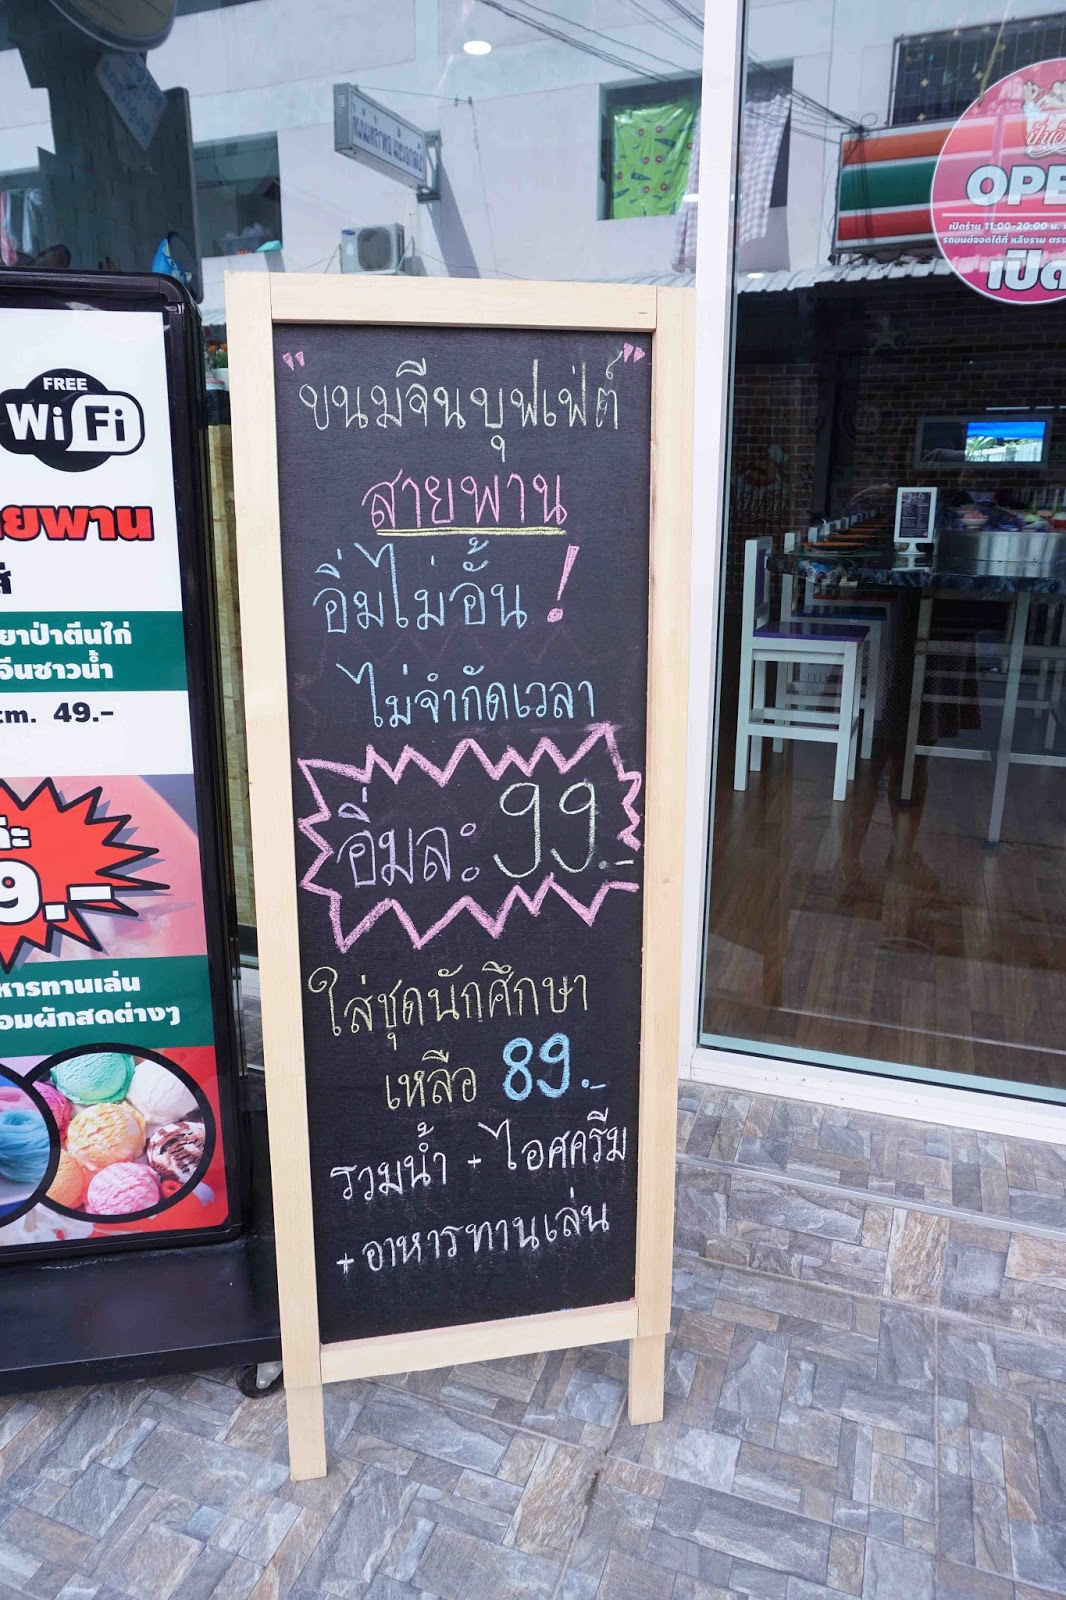 FREE
WiFi
ยพาน
ยาป่าตีนไก่
จีนซาวน้ำ
49.-
9.-
หารทานเล่น
อมผักสดต่างๆ
"ขนมจีนบุฟเฟ่ต์"
สายพาน
อิ่มไม่อั้น!
ไม่จำกัดเวลา
อิ่มละ 99.-
ใส่ชุดนักศึกษา
เหลือ 89.-
รวมน้ำ + ไอศครีม
+ อาหารทานเล่น
OPE
เปิดร้าน 11:00-20:00 น.
รถยนต์จอดได้ที่ หลังราม ตรง
เปิด